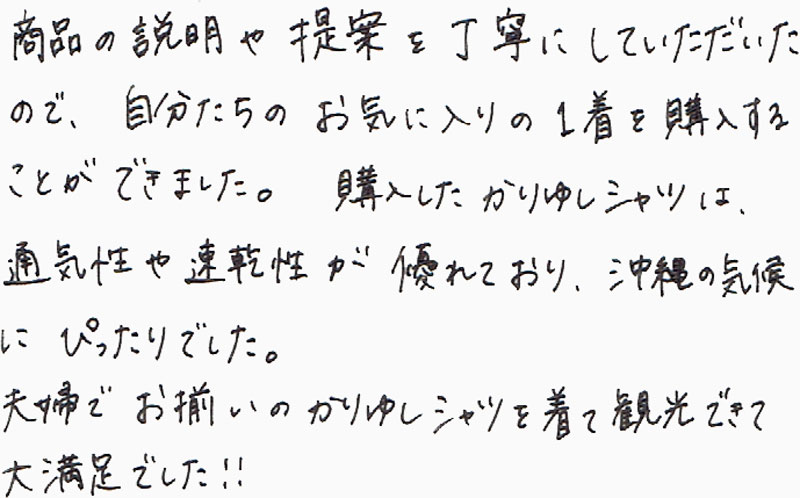 商品の説明や提案を丁寧にしていただいた
ので、自分たちのお気に入りの1着を購入する
ことができました。 購入したかりゆしシャツは、
通気性や速乾性が優れており、沖縄の気候
にぴったりでした。
夫婦でお揃いのかりゆしシャツを着て観光できて
大満足でした!!